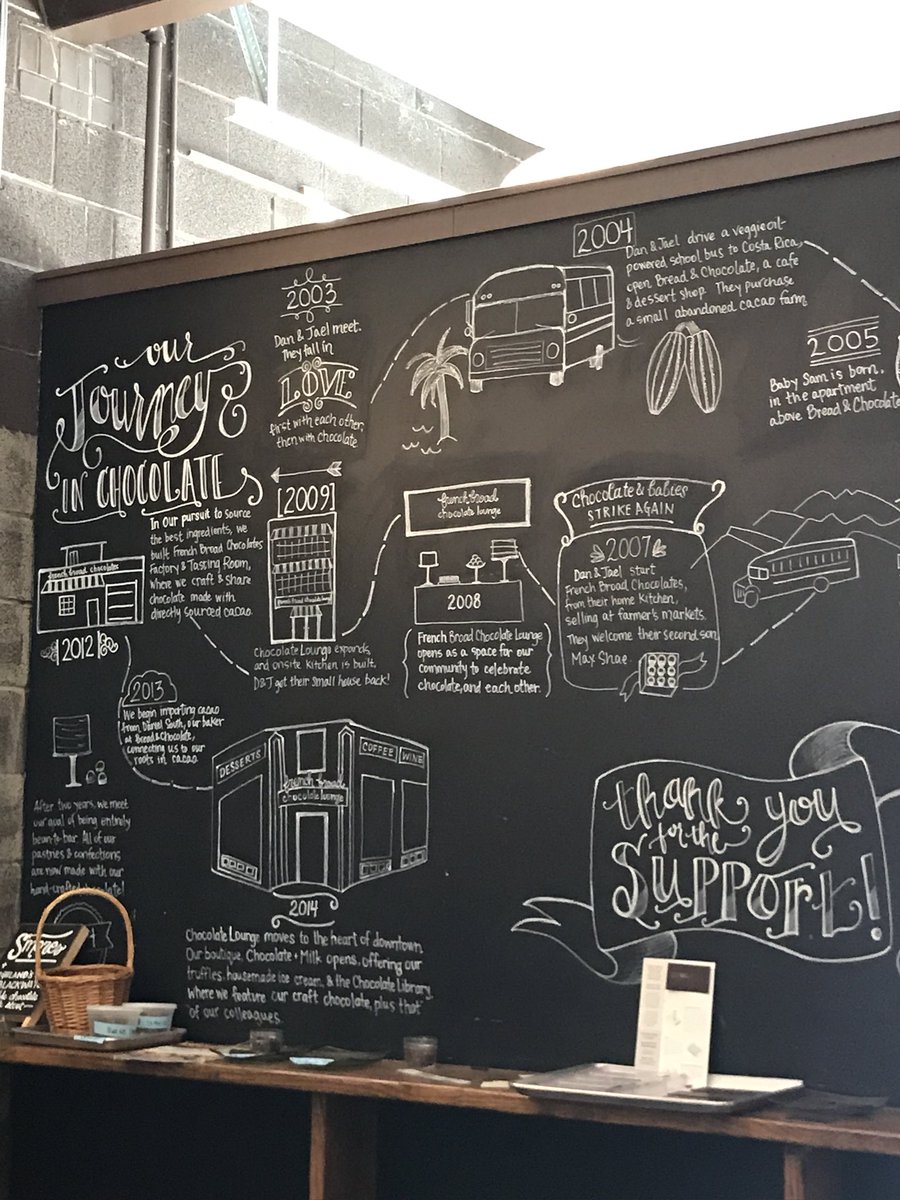 our
Journey
IN CHOCOLATE
2003
Dan & Jael meet.
They fall in
LOVE
first with each other,
then with chocolate
2004
Dan & Jael drive a veggie oil-
powered school bus to Costa Rica,
open Bread & Chocolate, a cafe
& dessert shop. They purchase
a small abandoned cacao farm
2005
Baby Sam is born,
in the apartment
above Bread & Chocolate
Chocolate & babies
STRIKE AGAIN
2007
Dan & Jael start
French Broad Chocolates,
from their home kitchen,
selling at farmer's markets.
They welcome their second son,
Max Shae
french broad
chocolate lounge
2008
French Broad Chocolate Lounge
opens as a space for our
community to celebrate
chocolate, and each other.
[2009]
french broad chocolate lounge
Chocolate Lounge expands,
and onsite kitchen is built.
D&J get their small house back!
In our pursuit to source
the best ingredients, we
built French Broad Chocolates
Factory & Tasting Room,
where we craft & share
chocolate made with
directly sourced cacao.
french broad chocolates
2012
2013
We begin importing cacao
from Daniel South, our baker
at Bread & Chocolate,
connecting us to our
roots in cacao.
After two years, we meet
our goal of being entirely
bean-to-bar. All of our
pastries & confections
are now made with our
hand-crafted chocolate!
DESSERTS
COFFEE
WINE
french broad
chocolate lounge
2014
Chocolate Lounge moves to the heart of downtown.
Our boutique, Chocolate + Milk opens, offering our
truffles, housemade ice cream, & the Chocolate Library,
where we feature our craft chocolate, plus that
of our colleagues.
thank you
for the
Support!
S'mores